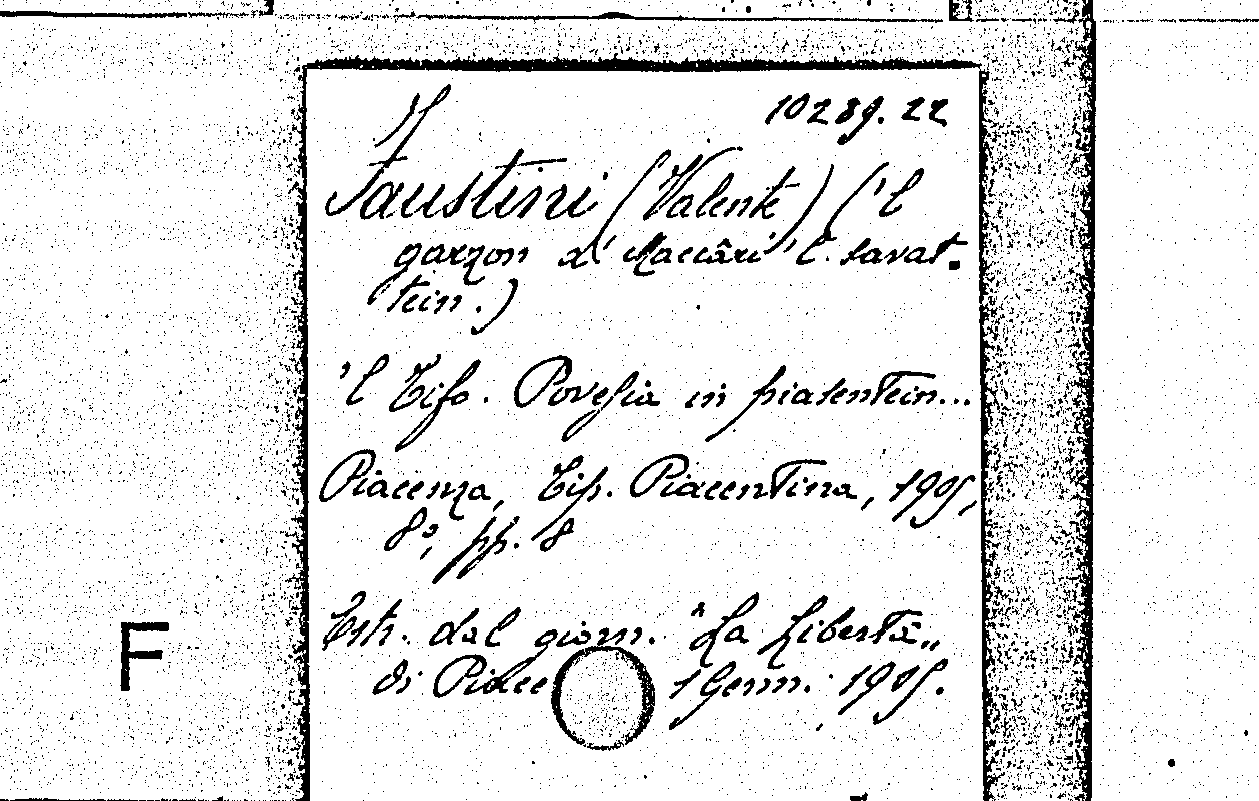 10289.22
Faustini (Valente) ('l
garzon d' Maccâri 'l savat-
tein.)
'l Tifo. Povesia in piasentein...
Piacenza, Tip. Piacentina, 1905,
8°, pp. 8
Estr. dal giorn. "La Libertà„
di Piace 1 Genn. 1905.
F